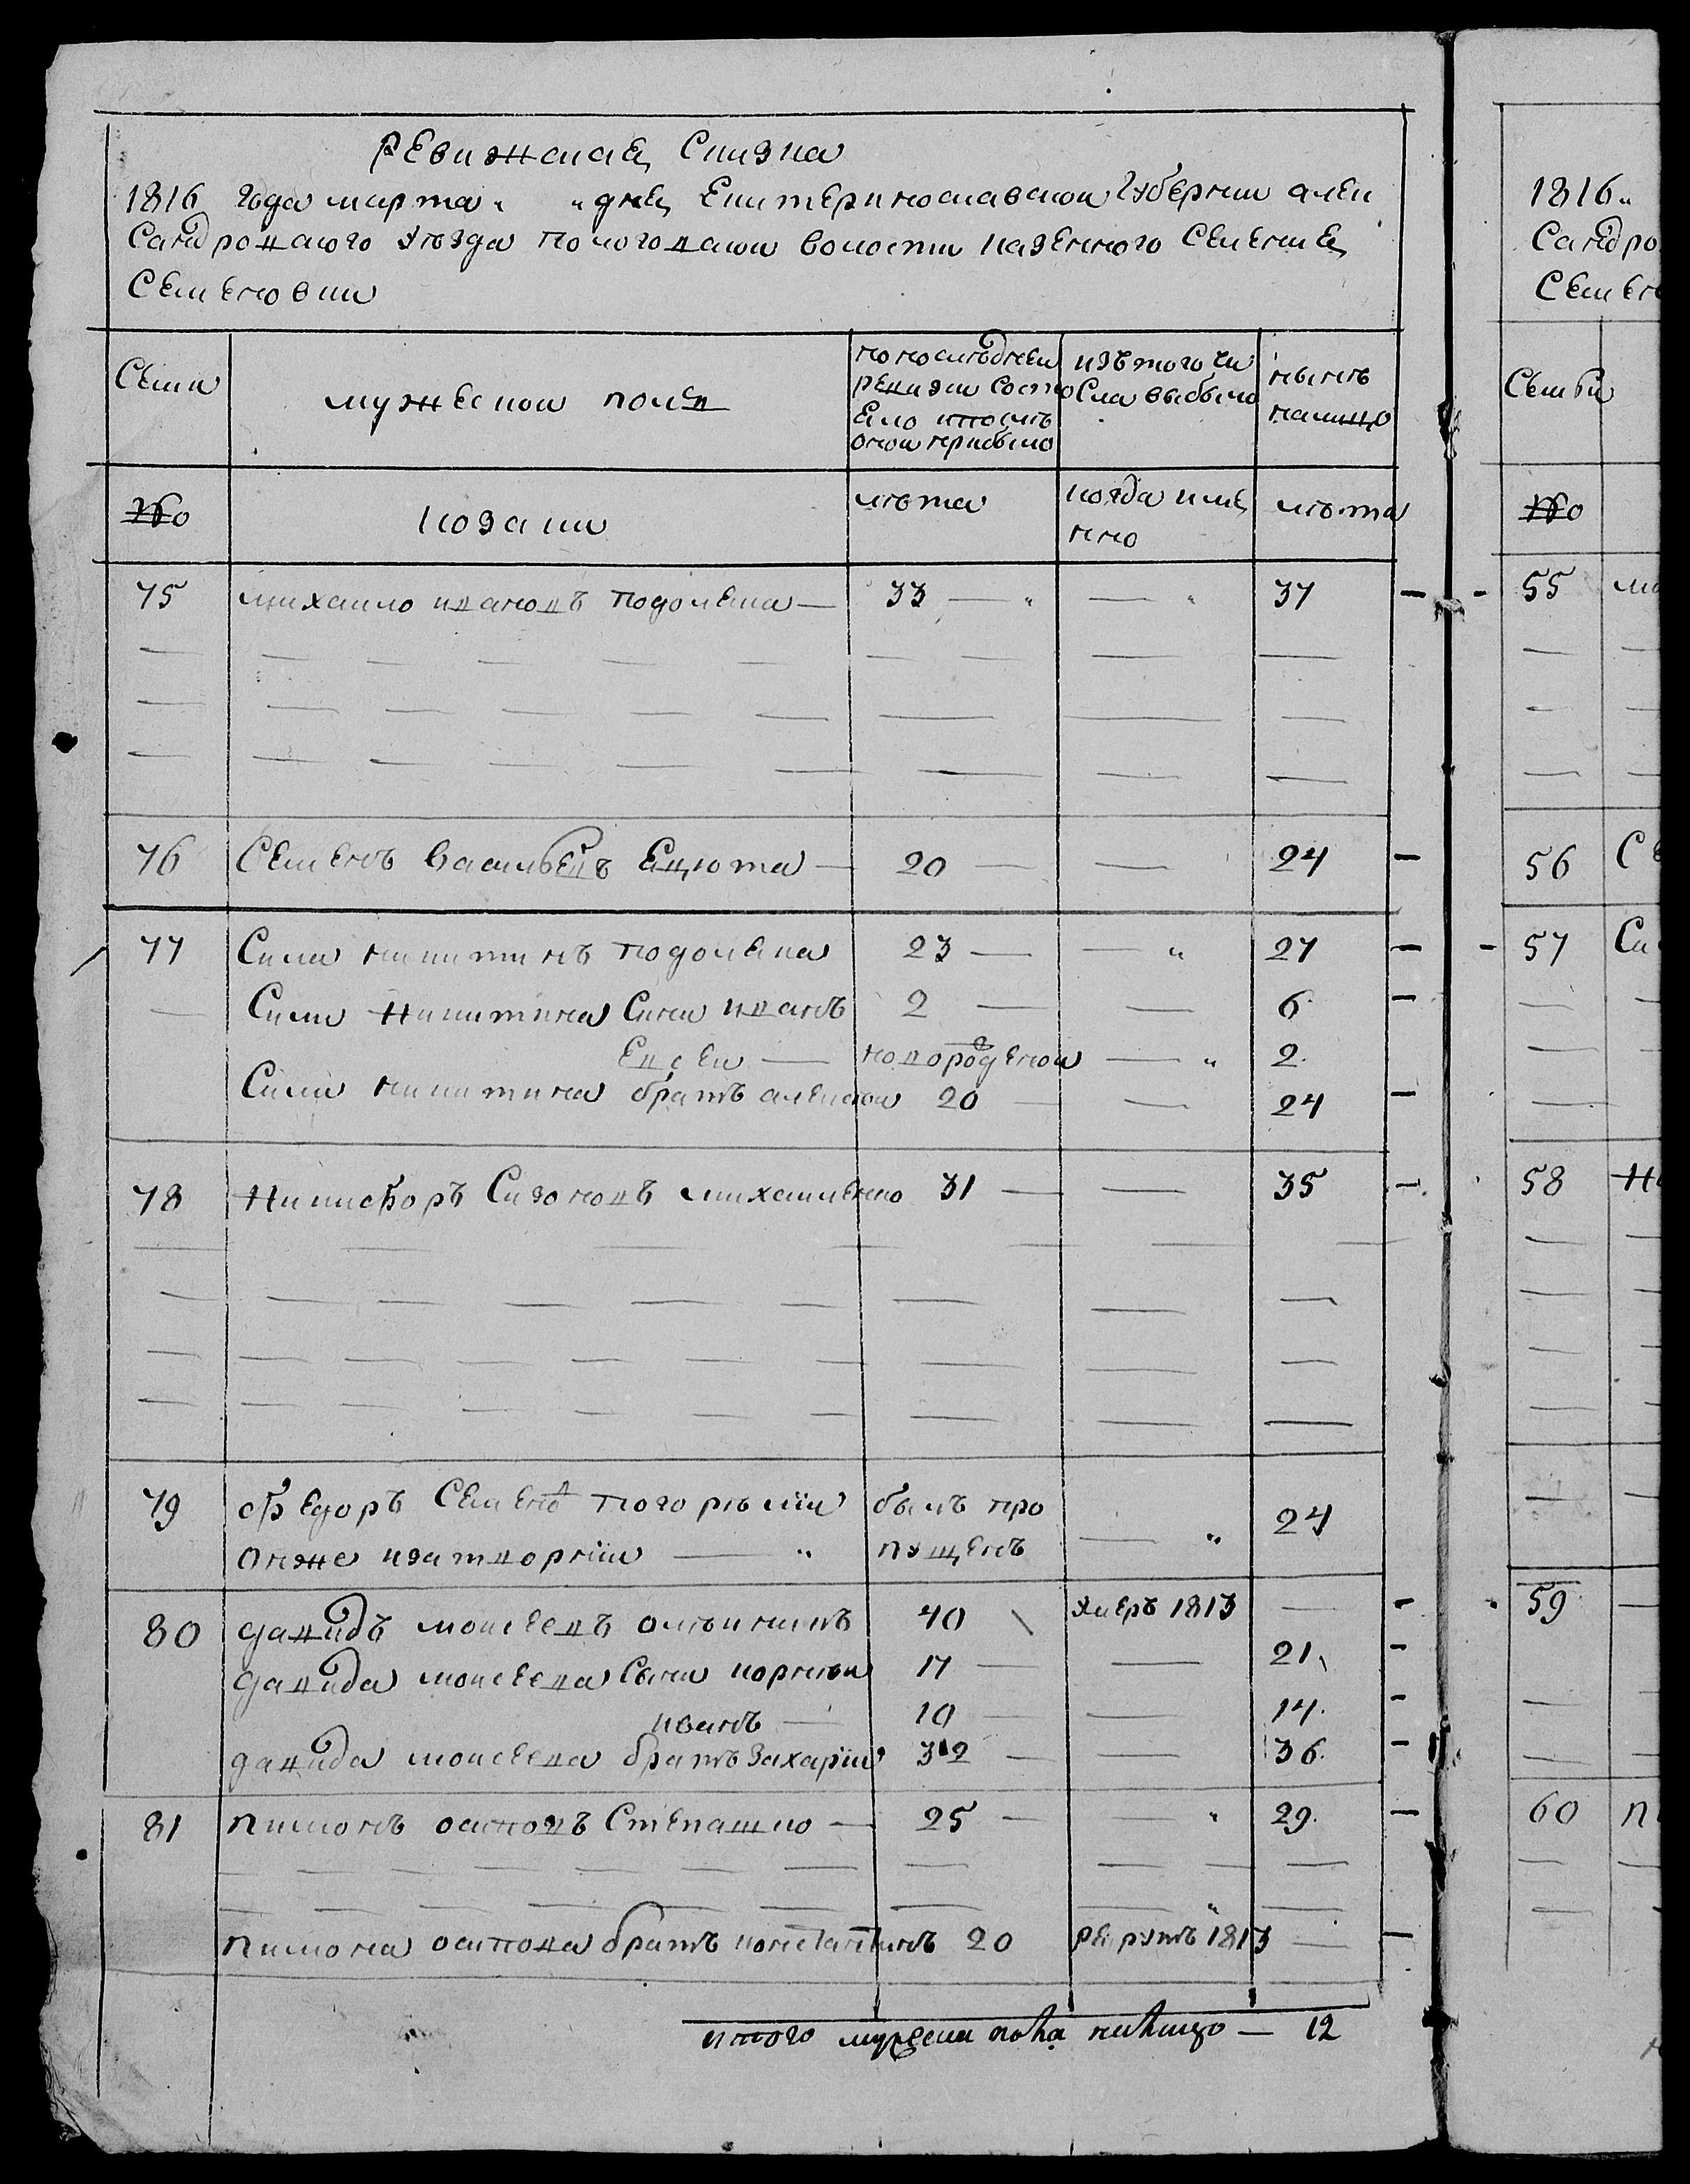 Ревижская Сказка
1816 года марта " " дня Екатеринославской Губернии алек
Сандровского уезда пологовской волости казенного Селения
Семеновки
Семи
мужеской пол
по последней
ревизии состо
яло и после
оной прибыло
изъ того чи
сла выбыло
нынѣ
налицо
№
козаки
лѣта
когда имя
нно
лѣта
75 михаило ивановъ подоляка — 33 — " — " 37
76 Семенъ васильевъ Ецюта — 20 — — 24
77 Сила никитинъ подоляка 23 — — " 27
— Силы Никитина Сини иванъ 2 — — 6
Евсеи — новорожденои — " 2.
Силы никитина братъ алексеи 20 — — 24
78 Никифоръ Сазоновъ михаиленко 31 — — 35
79 Федоръ Семеновъ погорелїи былъ про — " 24
онже изатворнїи — " пущенъ
80 давидъ моисеевъ олейникъ 40 умеръ 1813 —
давида моисеева Сыни корнеи 17 — — 21
иванъ — 10 — — 14.
давида моисеева братъ Захарїи 32 — — 36.
81 пимонъ осиповъ Степашко — 25 — — " 29.
пимона осипова братъ констанtинъ 20 рекрутъ 1813 —
итого мужеска пола налицо — 12
1816 "
Сандро
Семен
Семьи
№
55 ми
56 Се
57 Си
58 Ни
59
60 п